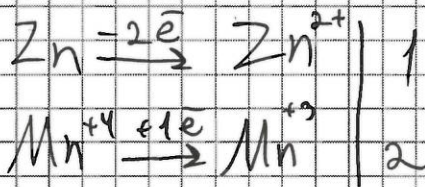 Zn -2ē → Zn²⁺ | 1
Mn⁺⁴ +1ē → Mn⁺³ | 2